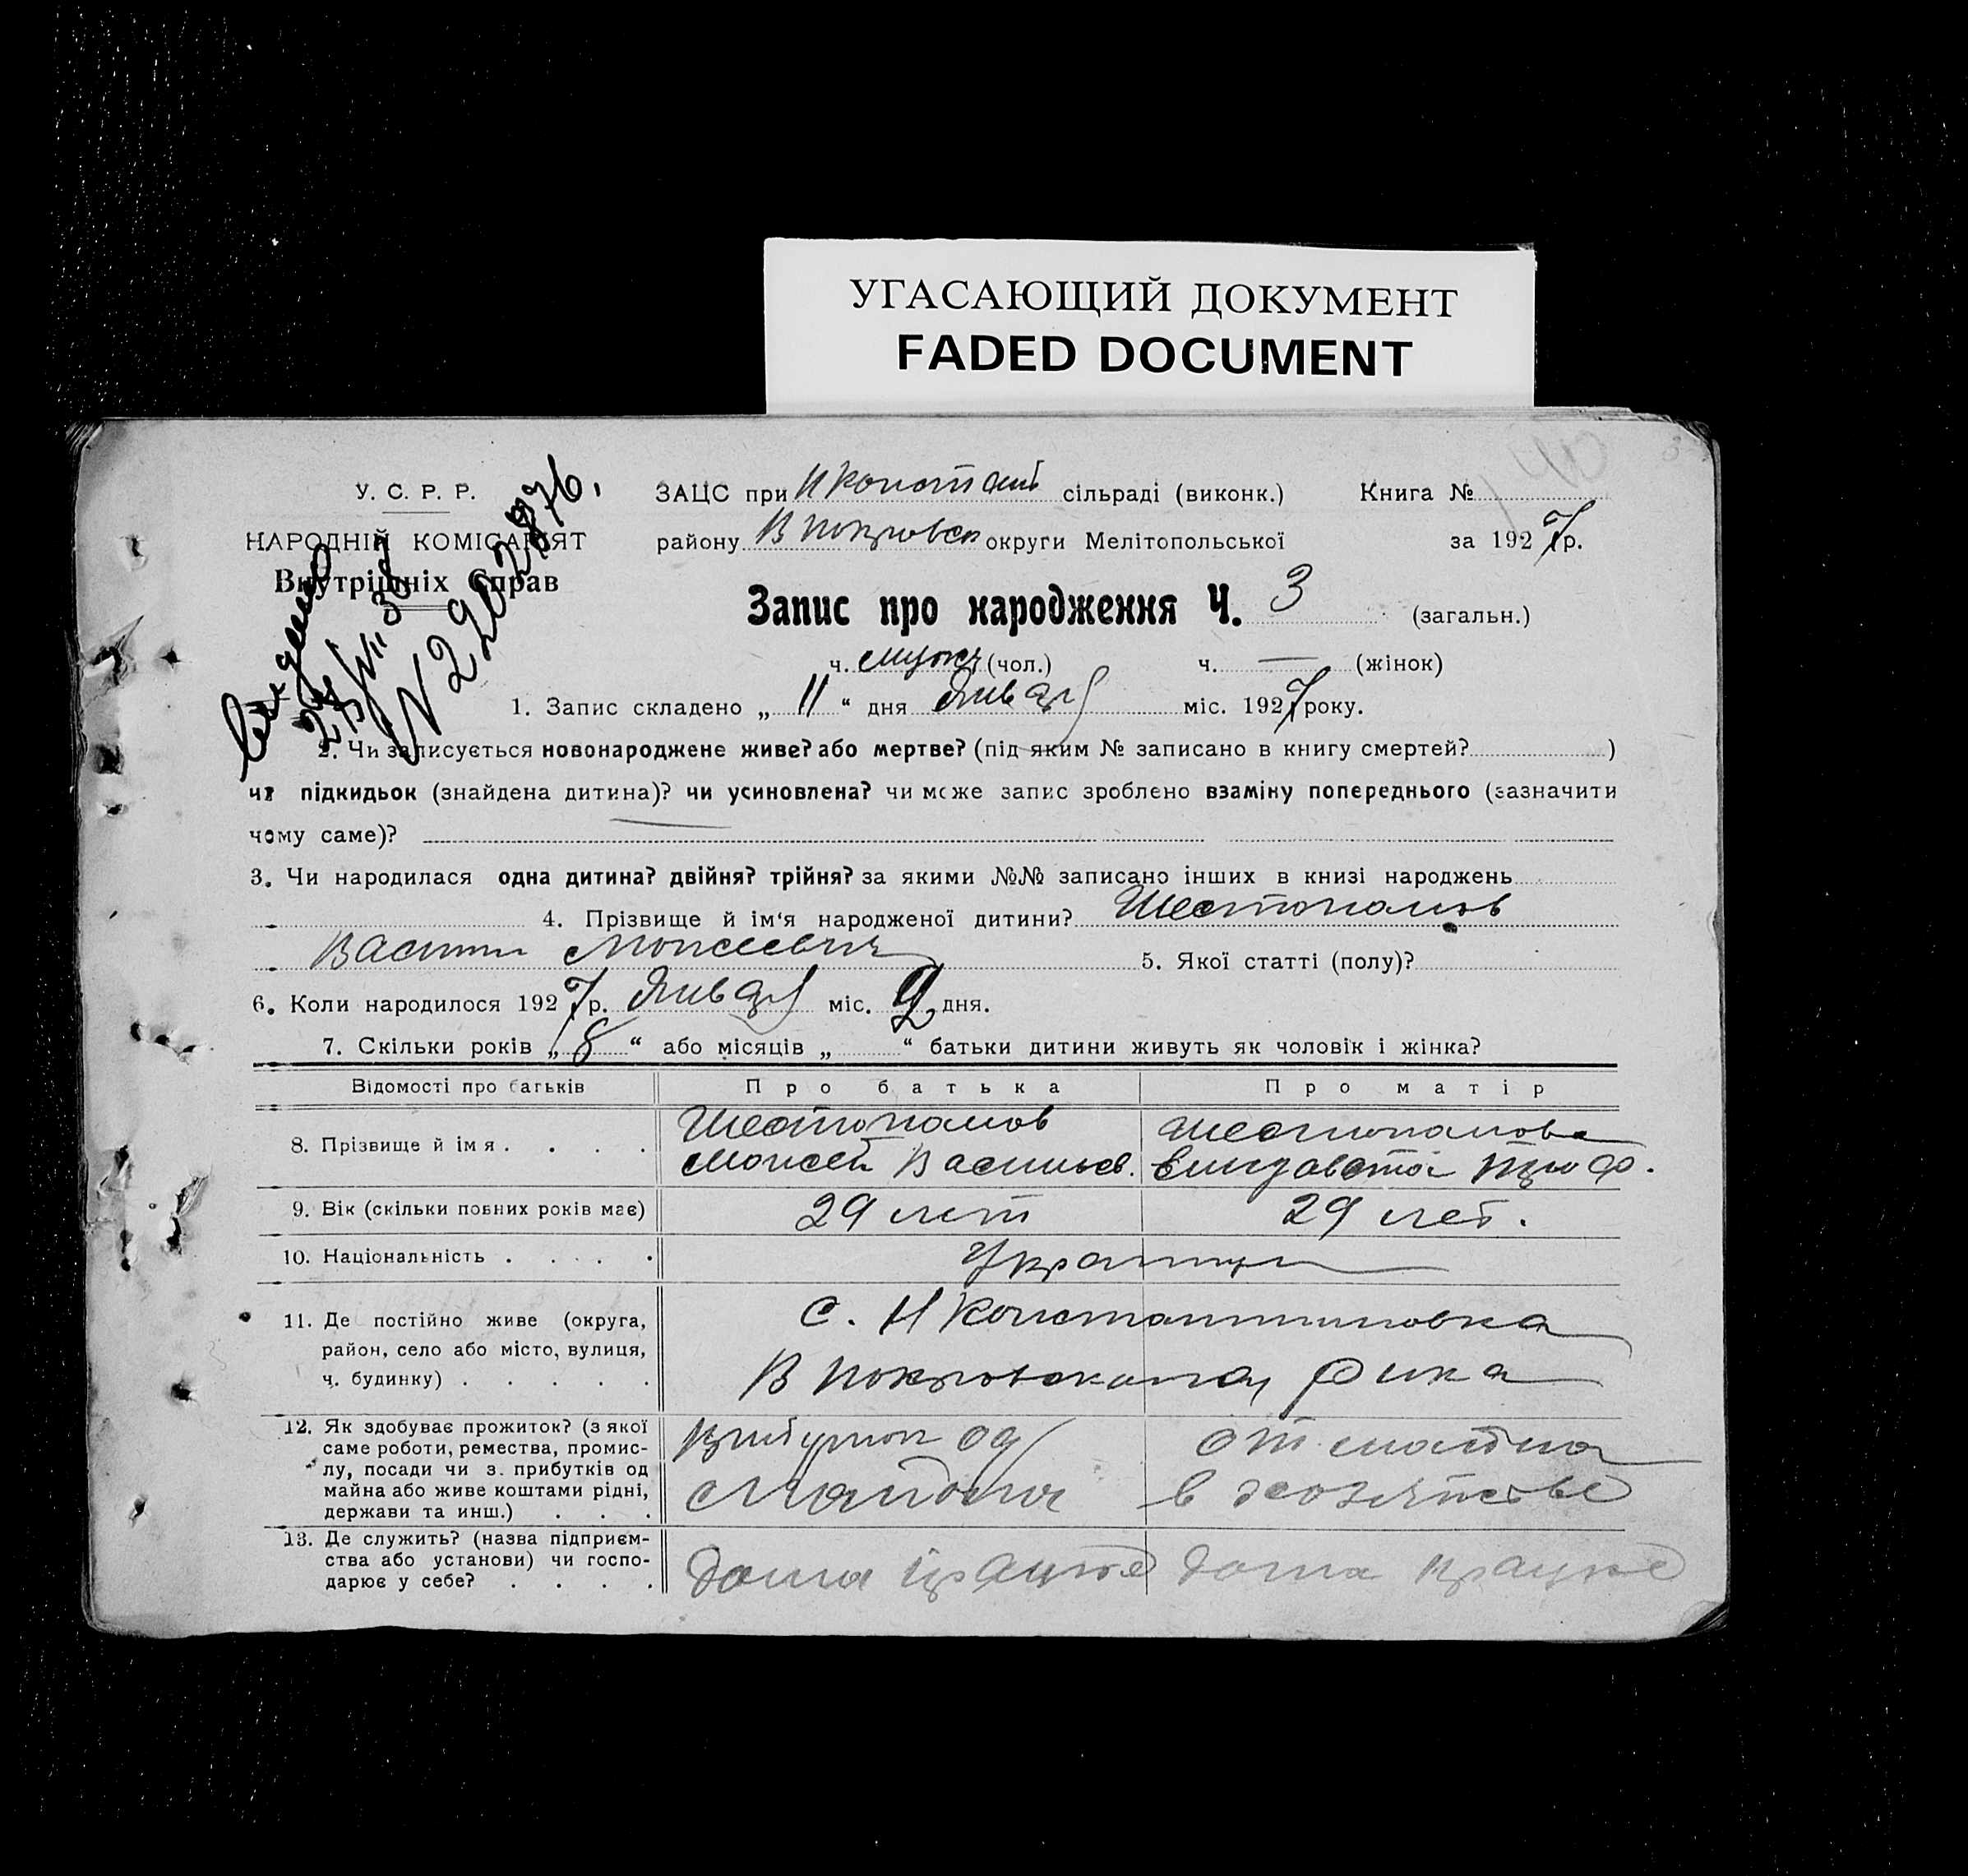 УГАСАЮЩИЙ ДОКУМЕНТ
FADED DOCUMENT
У. С. Р. Р.
НАРОДНІЙ КОМІСАРІЯТ
Внутрішніх Справ
ЗАЦС при Н Констант сільраді (виконк.) Книга №
району В Покровск округи Мелітопольської за 1927 р.
Запис про народження Ч. 3 (загальн.)
ч. мужч (чол.) ч. — (жінок)
1. Запис складено „ 11 “ дня Января міс. 1927 року.
2. Чи записується новонароджене живе? або мертве? (під яким № записано в книгу смертей? )
чи підкидьок (знайдена дитина)? чи усиновлена? чи може запис зроблено взаміну попереднього (зазначити
чому саме)?
3. Чи народилася одна дитина? двійня? трійня? за якими №№ записано інших в книзі народжень
4. Прізвище й ім‘я народженої дитини? Шестопалов
Васили Моисеевич 5. Якої статті (полу)?
6. Коли народилося 1927 р. Января міс. 2 дня.
7. Скільки років „ 8 “ або місяців „ “ батьки дитини живуть як чоловік і жінка?
Відомості про батьків Про батька Про матір
8. Прізвище й ім я . . . . Шестопалов Шестопалова
Моисей Васильев. Елизавета Троф.
9. Вік (скільки повних років має) 29 лет 29 лет.
10. Національність . . . . Украинцы
11. Де постійно живе (округа, район, село або місто, вулиця, ч. будинку) . . . . .
С. Н Константиновка
В Покровского Рика
12. Як здобуває прожиток? (з якої саме роботи, ремества, промислу, посади чи з. прибутків од майна або живе коштами рідні, держави та инш.) . . .
прибуток од от майна
майна в хозяйстве
13. Де служить? (назва підприємства або установи) чи господарює у себе? . . . .
дома працюе дома працюе